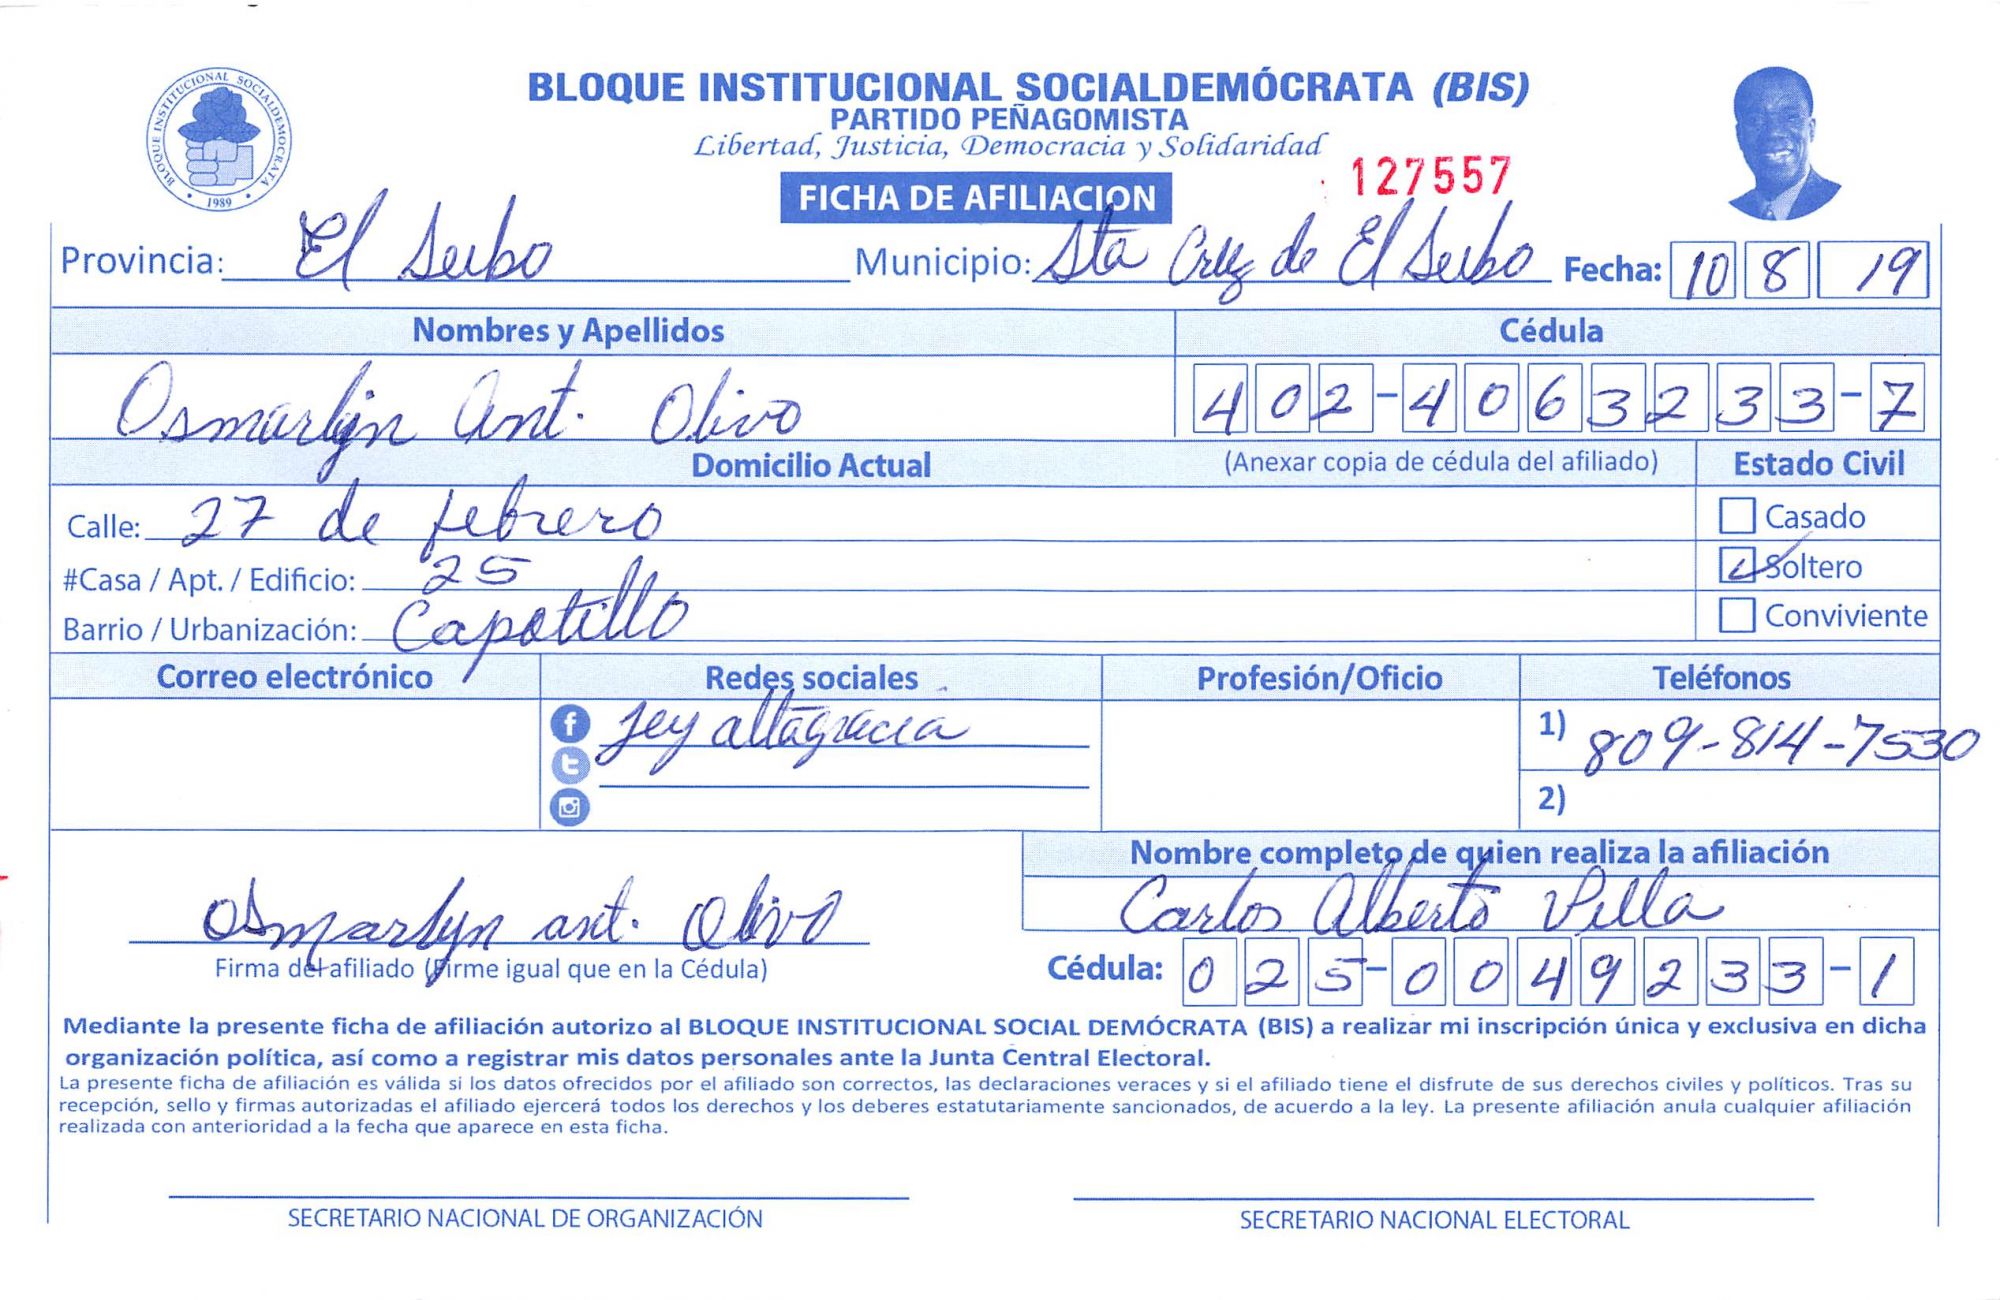 BLOQUE INSTITUCIONAL SOCIALDEMOCRATA
1989
BLOQUE INSTITUCIONAL SOCIALDEMÓCRATA (BIS)
PARTIDO PEÑAGOMISTA
Libertad, Justicia, Democracia y Solidaridad
127557
FICHA DE AFILIACION
Provincia: El Seibo Municipio: Sta Cruz de El Seibo Fecha: 10 8 19
Nombres y Apellidos Cédula
Osmarlyn Ant. Olivo 402-4063233-7
Domicilio Actual (Anexar copia de cédula del afiliado) Estado Civil
Calle: 27 de febrero Casado
#Casa / Apt. / Edificio: 25 Soltero
Barrio / Urbanización: Capotillo Conviviente
Correo electrónico Redes sociales Profesión/Oficio Teléfonos
Jey altagracia 1) 809-814-7530
2)
Nombre completo de quien realiza la afiliación
Osmarlyn ant. Olivo Carlos Alberto Villa
Firma del afiliado (Firme igual que en la Cédula) Cédula: 025-0049233-1
Mediante la presente ficha de afiliación autorizo al BLOQUE INSTITUCIONAL SOCIAL DEMÓCRATA (BIS) a realizar mi inscripción única y exclusiva en dicha
organización política, así como a registrar mis datos personales ante la Junta Central Electoral.
La presente ficha de afiliación es válida si los datos ofrecidos por el afiliado son correctos, las declaraciones veraces y si el afiliado tiene el disfrute de sus derechos civiles y políticos. Tras su
recepción, sello y firmas autorizadas el afiliado ejercerá todos los derechos y los deberes estatutariamente sancionados, de acuerdo a la ley. La presente afiliación anula cualquier afiliación
realizada con anterioridad a la fecha que aparece en esta ficha.
SECRETARIO NACIONAL DE ORGANIZACIÓN SECRETARIO NACIONAL ELECTORAL